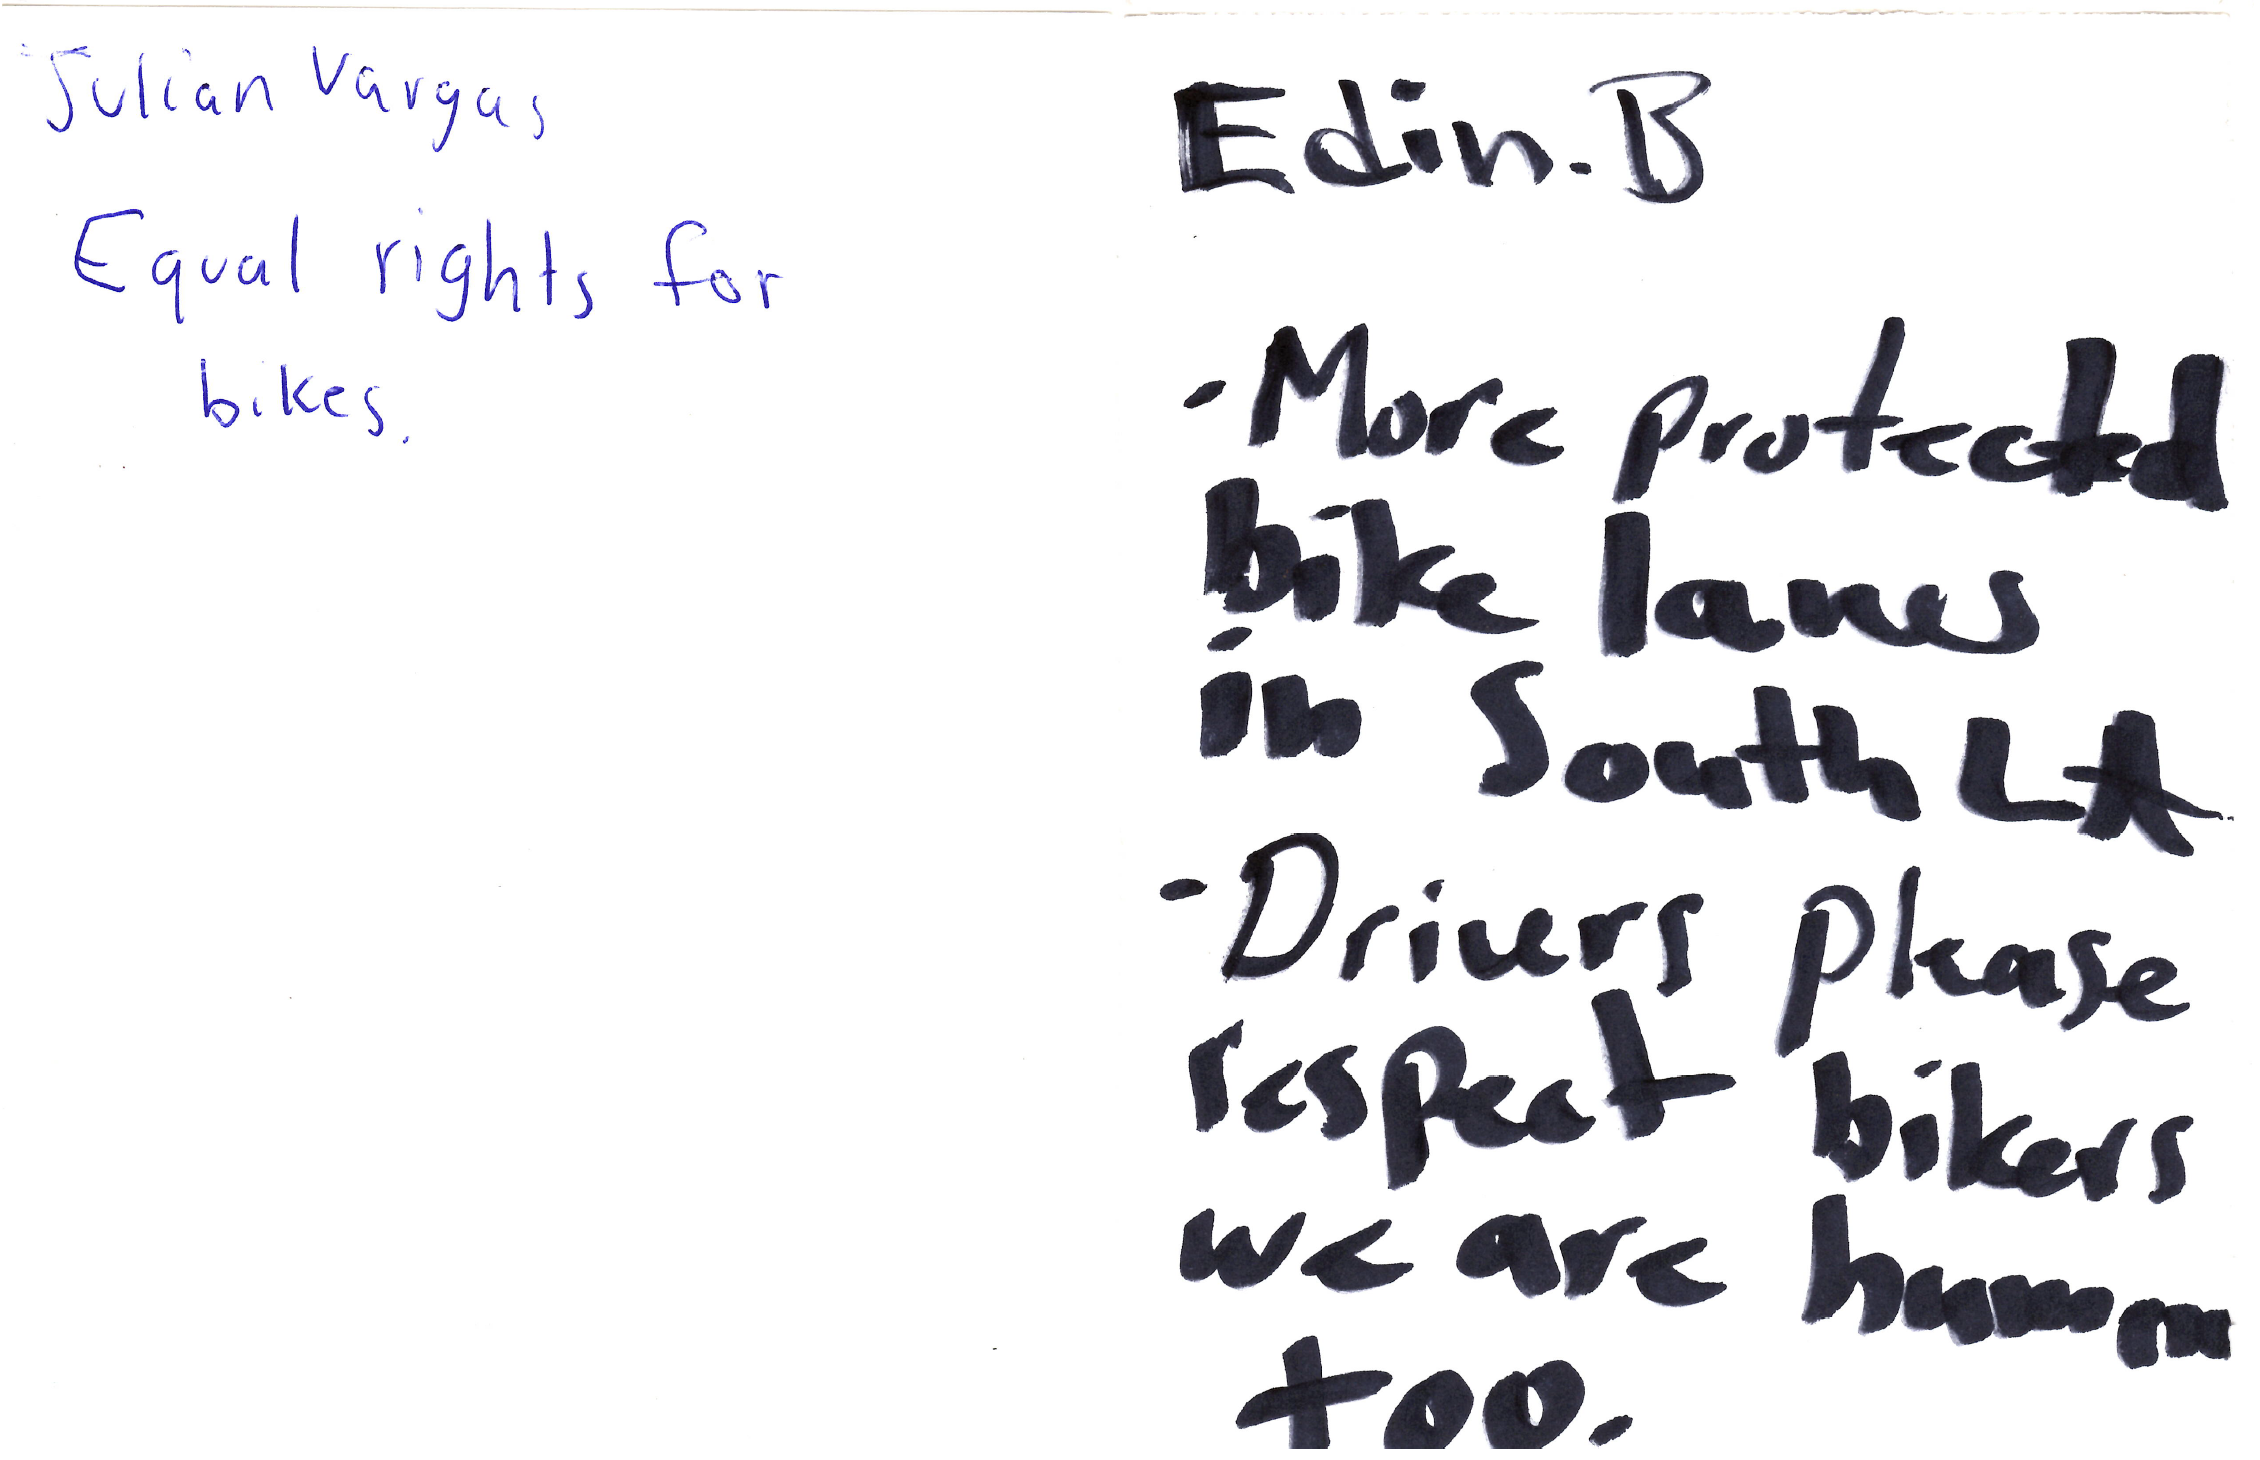 Julian Vargas
Equal rights for
bikes.
Edin. B
- More protected
bike lanes
in South LA
- Drivers please
respect bikers
we are human
too.